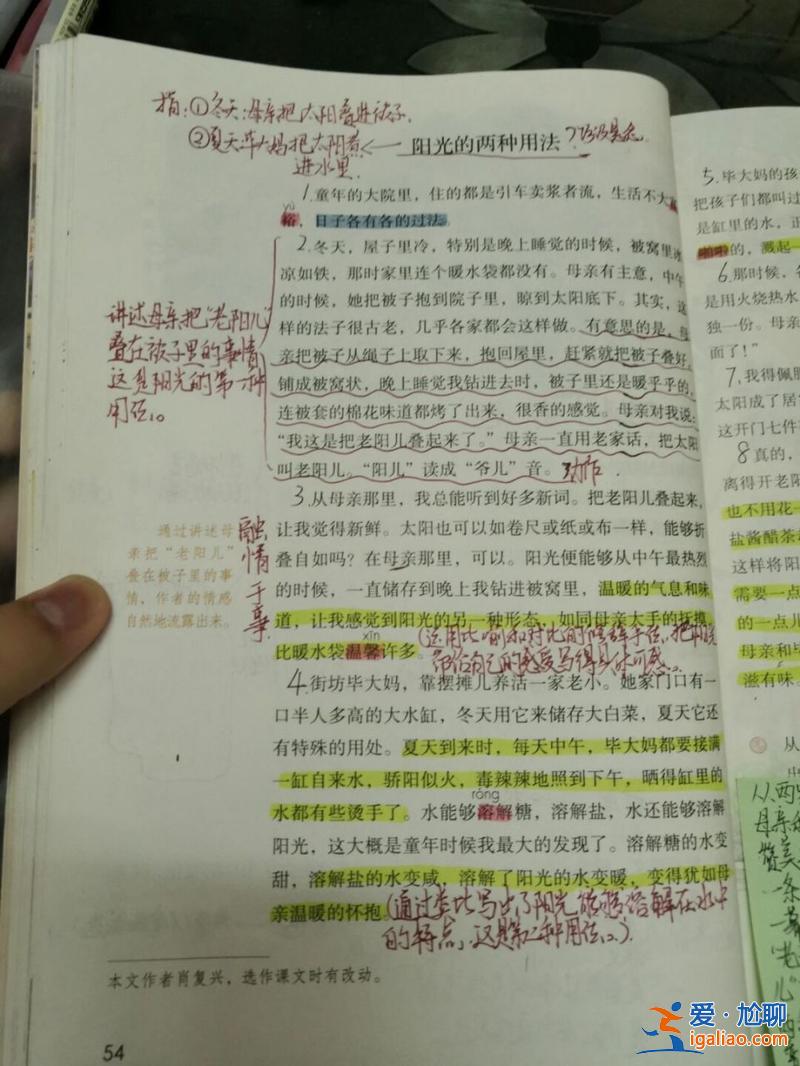 指:①冬天:母亲把太阳叠进被子.
②夏天:毕大妈把太阳煮
进水里.
阳光的两种用法
1.童年的大院里,住的都是引车卖浆者流,生活不大
yù
裕,日子各有各的过法。
2.冬天,屋子里冷,特别是晚上睡觉的时候,被窝里冰
凉如铁,那时家里连个暖水袋都没有。母亲有主意,中午
的时候,她把被子抱到院子里,晾到太阳底下。其实,这
样的法子很古老,几乎各家都会这样做。有意思的是,母
亲把被子从绳子上取下来,抱回屋里,赶紧就把被子叠好,
铺成被窝状,晚上睡觉我钻进去时,被子里还是暖乎乎的,
连被套的棉花味道都烤了出来,很香的感觉。母亲对我说:
“我这是把老阳儿叠起来了。”母亲一直用老家话,把太阳
叫老阳儿。“阳儿”读成“爷儿”音。
动作.
讲述母亲把“老阳儿”
叠在被子里的事情,
这是阳光的第一种
用法。
3.从母亲那里,我总能听到好多新词。把老阳儿叠起来,
让我觉得新鲜。太阳也可以如卷尺或纸或布一样,能够折
叠自如吗?在母亲那里,可以。阳光便能够从中午最热烈
的时候,一直储存到晚上我钻进被窝里,温暖的气息和味
道,让我感觉到阳光的另一种形态,如同母亲大手的抚摸,
xīn
比暖水袋温馨许多。
(运用比喻和对比的修辞手法,把阳光
带给自己的感受写得具体可感。)
融情于事
通过讲述母
亲把“老阳儿”
叠在被子里的事
情,作者的情感
自然地流露出来。
4.街坊毕大妈,靠摆摊儿养活一家老小。她家门口有一
口半人多高的大水缸,冬天用它来储存大白菜,夏天它还
有特殊的用处。夏天到来时,每天中午,毕大妈都要接满
一缸自来水,骄阳似火,毒辣辣地照到下午,晒得缸里的
róng
水都有些烫手了。水能够溶解糖,溶解盐,水还能够溶解
阳光,这大概是童年时候我最大的发现了。溶解糖的水变
甜,溶解盐的水变咸,溶解了阳光的水变暖,变得犹如母
亲温暖的怀抱。
(通过类比写出了阳光能够溶解在水中
的特点,这是第二种用法。)
本文作者肖复兴,选作课文时有改动。
54
5.毕大妈的孩
把孩子们都叫过
是缸里的水,正
啪啪的,溅起一
6.那时候,各
是用火烧热水
独一份。母亲
面了!”
7.我得佩服
太阳成了居
这开门七件
8真的,
离得开老阳
也不用花一
盐酱醋茶
这样将阳
需要一点
的一点儿
母亲和毕
滋有味。
从
从两
母亲和
赞美
一条
“老
儿”
爱·尬聊
igaliao.com